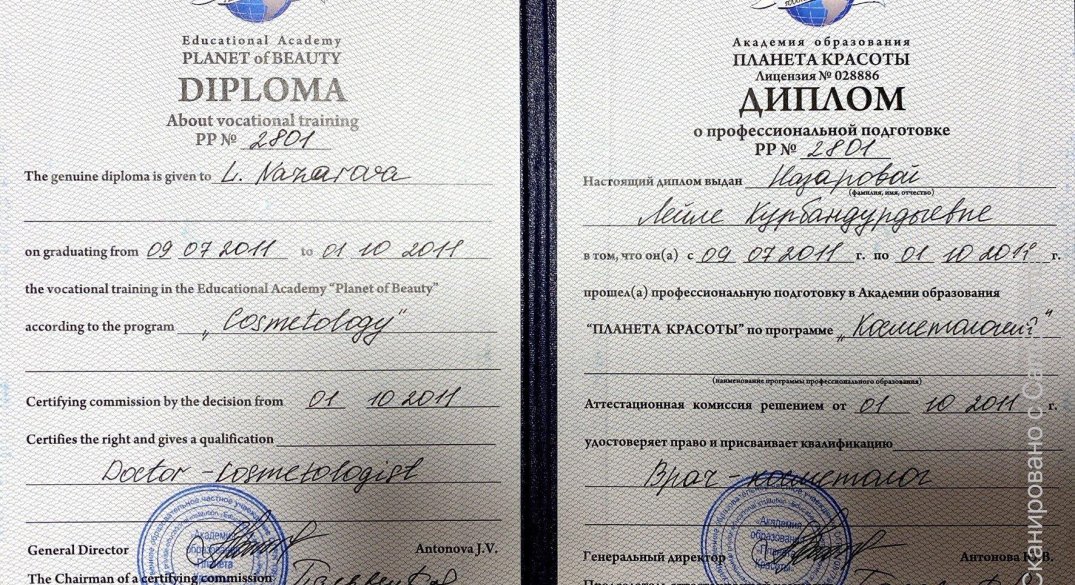 Educational Academy
PLANET of BEAUTY
DIPLOMA
About vocational training
PP № 2801
The genuine diploma is given to L. Nazarova
on graduating from 09 07 2011 to 01 10 2011
the vocational training in the Educational Academy "Planet of Beauty"
according to the program „Cosmetology"
Certifying commission by the decision from 01 10 2011
Certifies the right and gives a qualification
Doctor - cosmetologist
General Director Antonova J.V.
The Chairman of a certifying commission
Академия образования
ПЛАНЕТА КРАСОТЫ
Лицензия № 028886
ДИПЛОМ
о профессиональной подготовке
РР № 2801
Настоящий диплом выдан Назаровой
(фамилия, имя, отчество)
Лейле Курбандурдыевне
в том, что он(а) с 09 07 2011 г. по 01 10 2011 г.
прошел(а) профессиональную подготовку в Академии образования
"ПЛАНЕТА КРАСОТЫ" по программе „Косметология"
(наименование программы профессионального образования)
Аттестационная комиссия решением от 01 10 2011 г.
удостоверяет право и присваивает квалификацию
Врач - косметолог
Генеральный директор Антонова
Академия
образования
Планета
Сканировано с